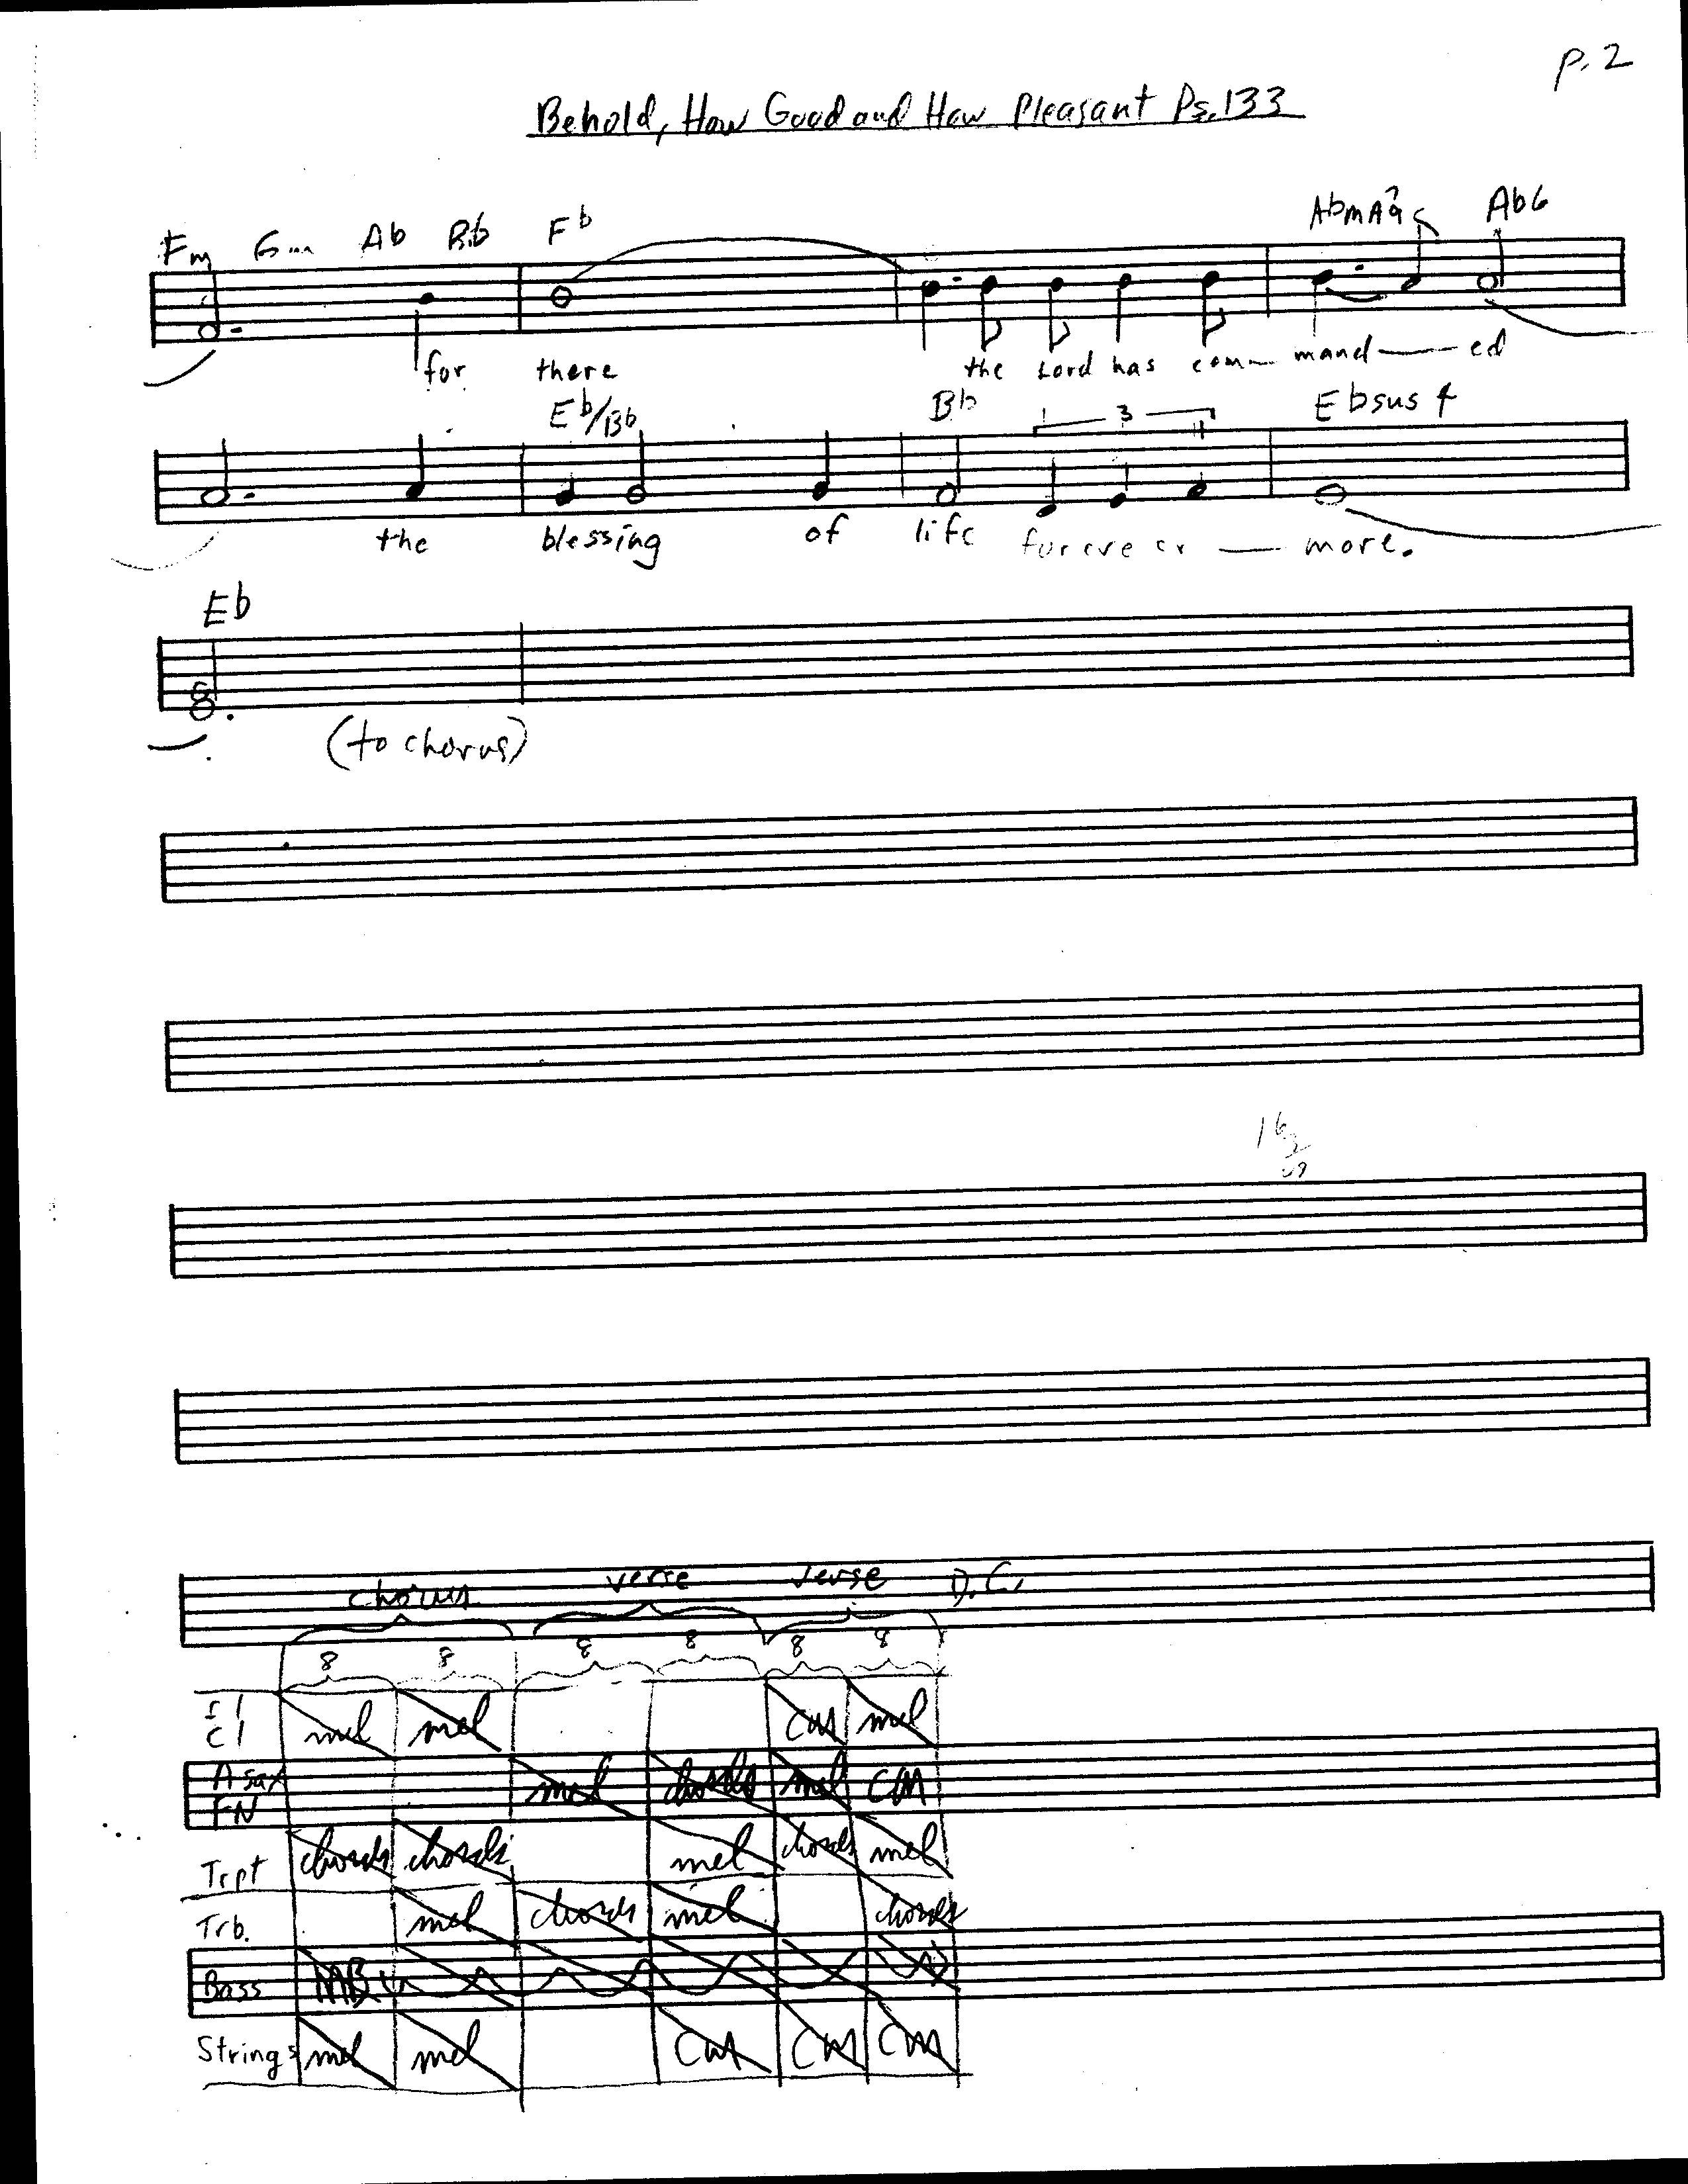 p. 2
Behold, How Good and How Pleasant Ps. 133
Fm Gm Ab Bb Eb AbMA9 Ab6
for there the Lord has com — mand — ed
Eb/Bb Bb 3 Ebsus4
the blessing of life forever — more.
Eb
(to chorus)
chorus verse verse D.C.
8 8 8 8 8 8
Cl mel mel CM mel
A sax mel chords mel CM
Trpt chords chords mel chords mel
Trb. mel chords mel chords
Bass
Strings mel mel CM CM CM